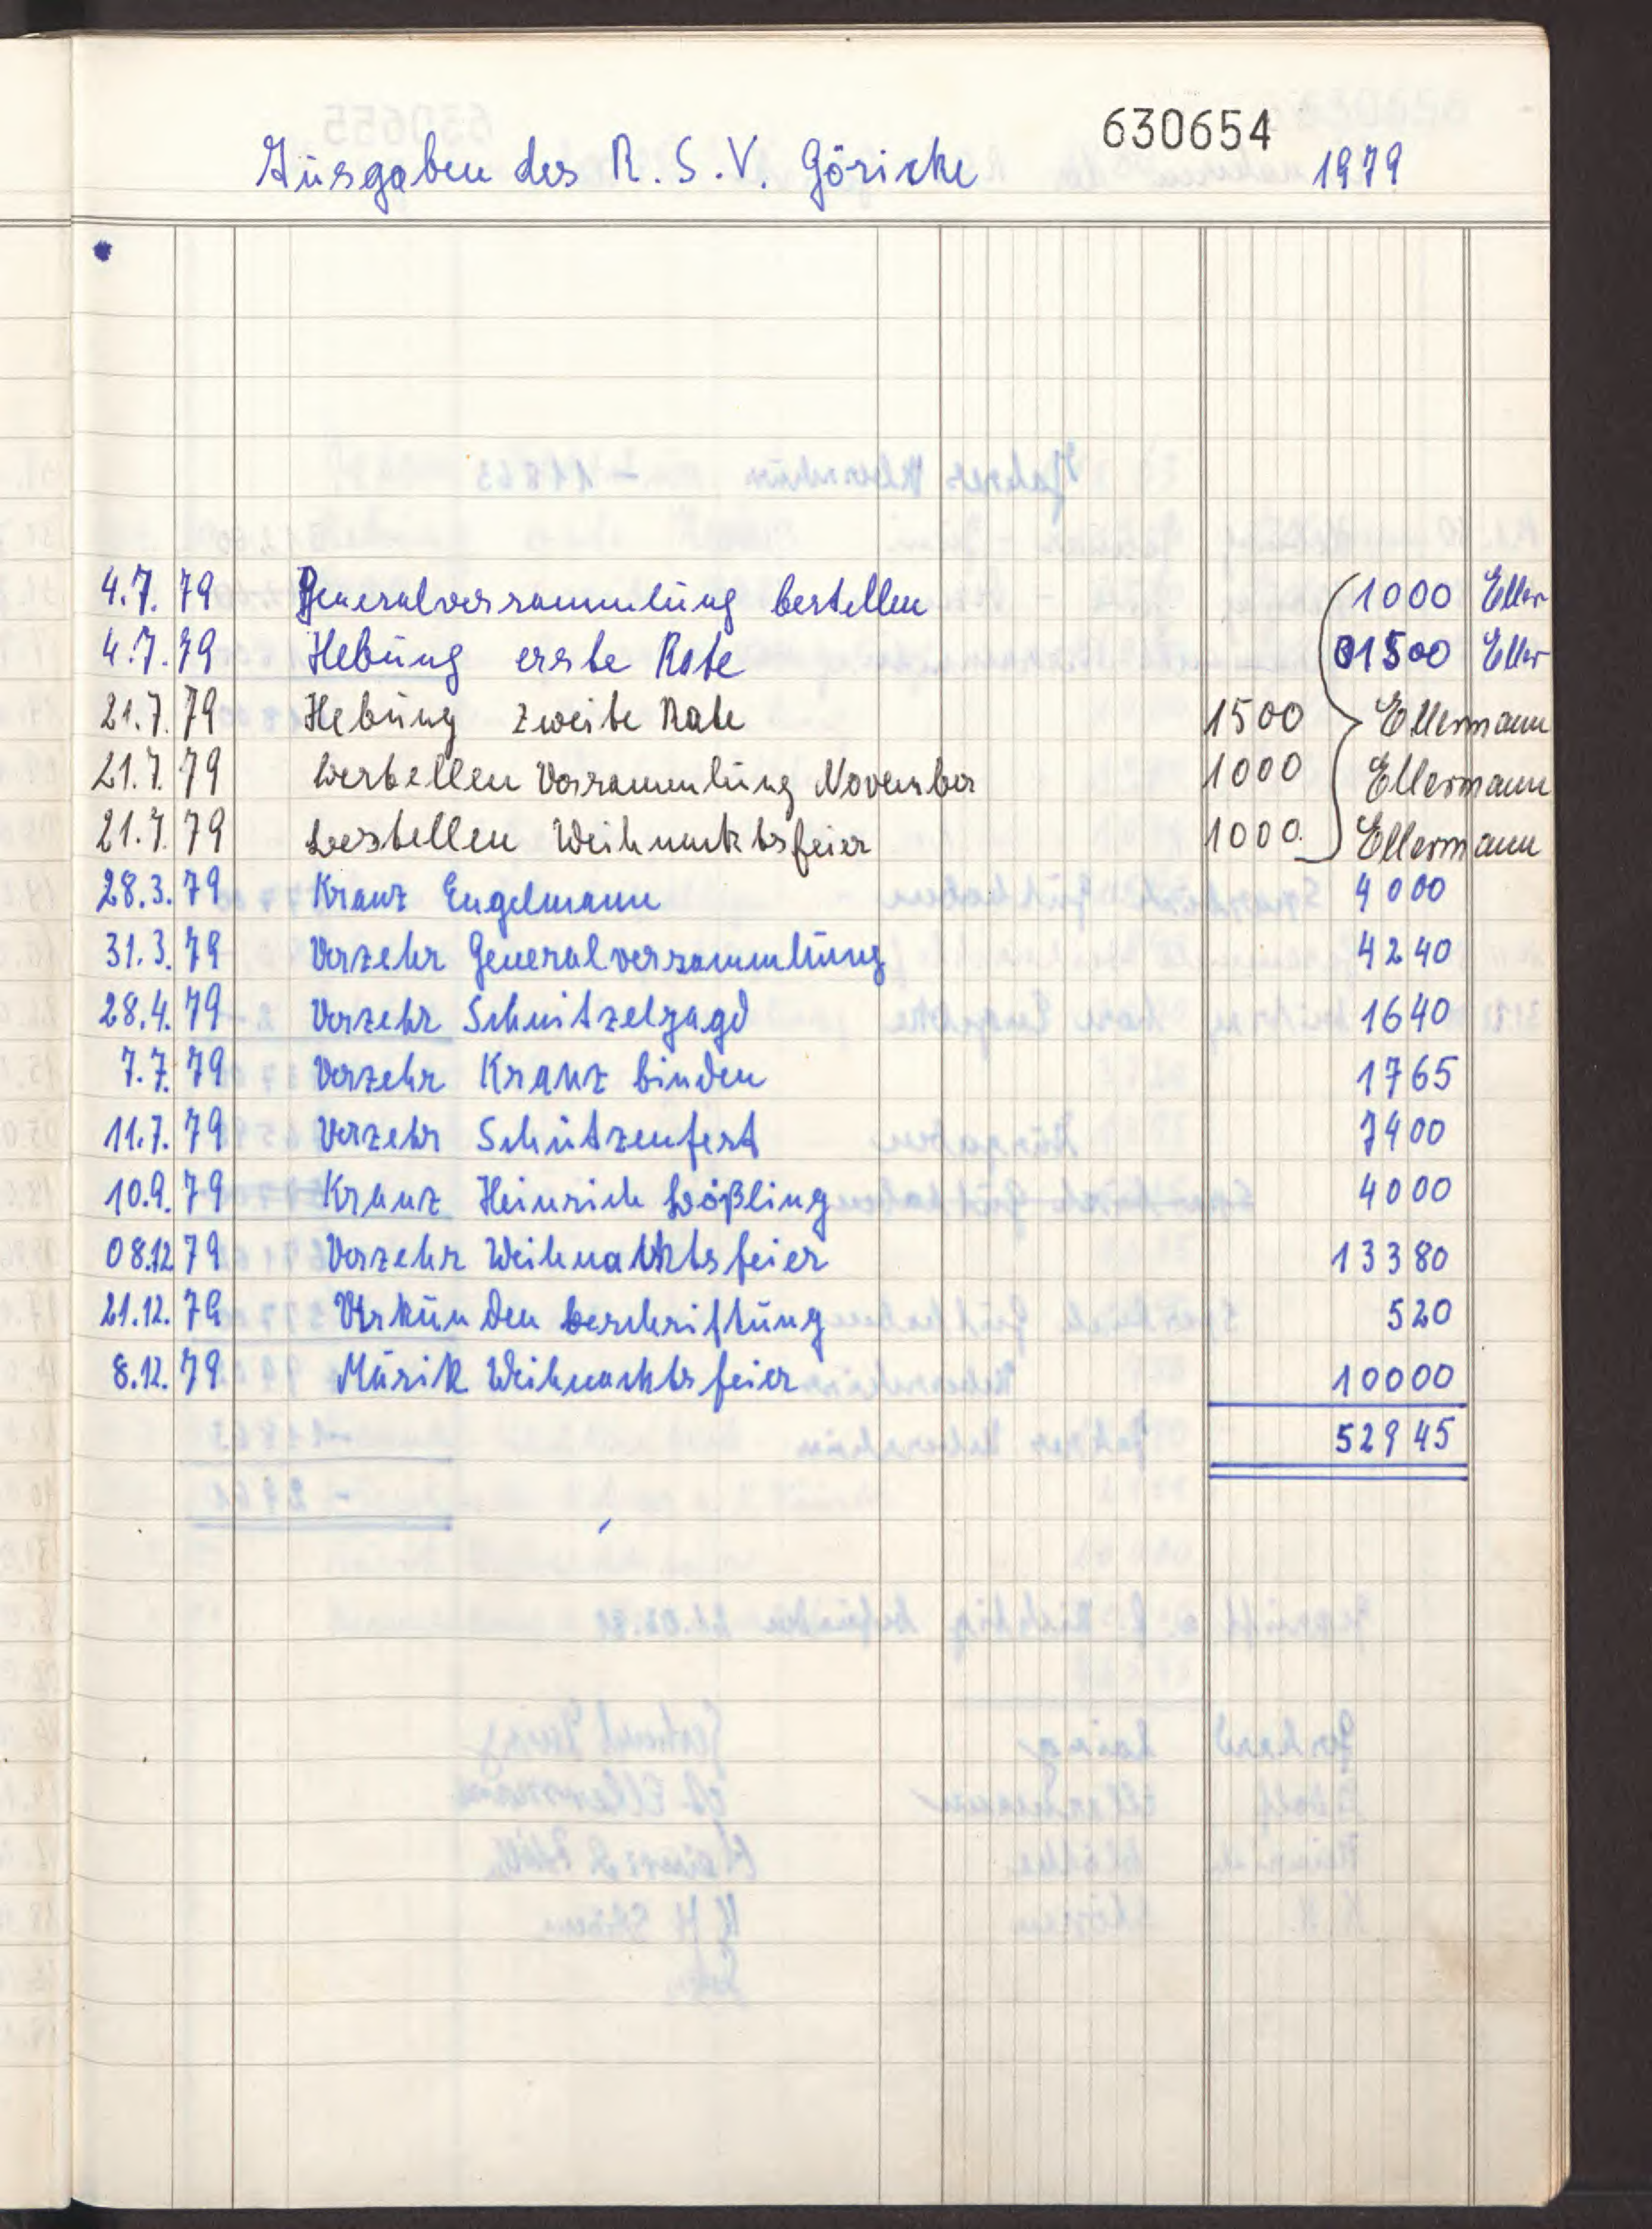 630654
Ausgaben des R.S.V. Göricke 1979
4.7.79 Generalversammlung bestellen 1000 Eller
4.7.79 Hebung erste Rate 01500 Eller
21.7.79 Hebung zweite Rate 1500 Ellermann
21.7.79 bestellen Versammlung November 1000 Ellermann
21.7.79 bestellen Weihnachtsfeier 1000 Ellermann
28.3.79 Kranz Engelmann 4000
31.3.79 Verzehr Generalversammlung 4240
28.4.79 Verzehr Schnitzeljagd 1640
7.7.79 Verzehr Kranz binden 1765
11.7.79 Verzehr Schützenfest 7400
10.9.79 Kranz Heinrich Bößling 4000
08.12 79 Verzehr Weihnachtsfeier 13380
21.12.79 Urkunden beschriftung 520
8.12.79 Musik Weihnachtsfeier 10000
52945